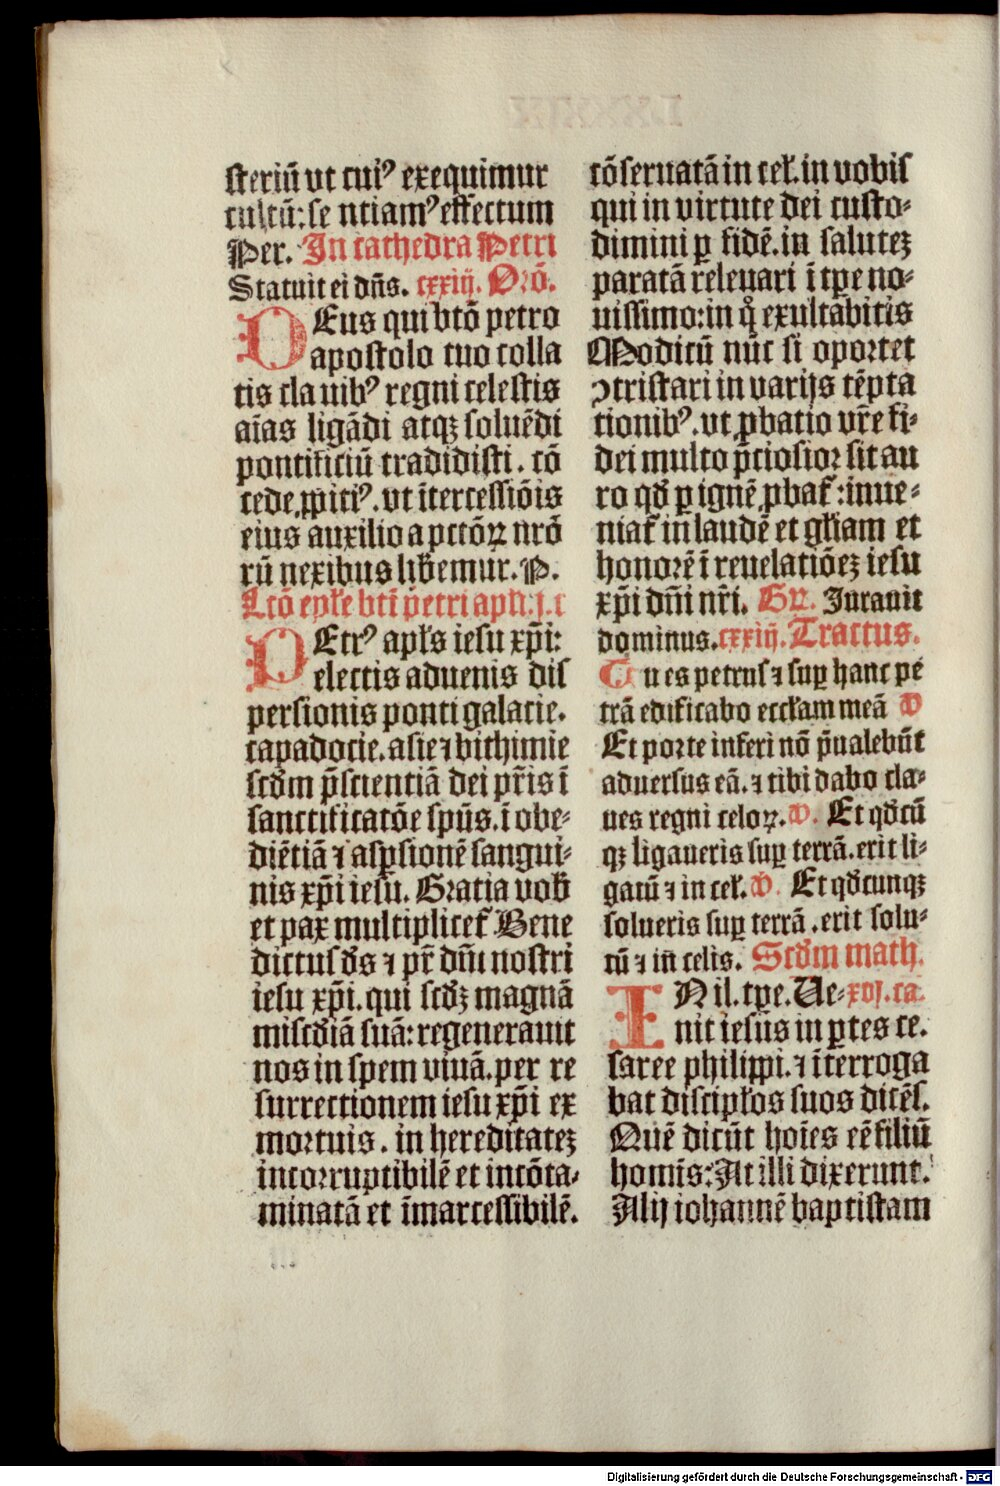 steriū ut cuiꝰ exequimur
cultū: se ntiamꝰ effectum
Per. In cathedra Petri
Statuit ei dn̄s. cxxiij. Orō.
DEus qui btō petro
apostolo tuo colla
tis clauibꝰ regni celestis
aīas ligādi atqꝫ soluēdi
pontificiū tradidisti. cō
cede ꝓpitiꝰ. ut ītercessiōis
eius auxilio a pctōꝝ nrō
rū nexibus liƀemur. P.
Lcō epłe btī petri apłi. j. c
PEtrꝰ apłs iesu xp̄i:
electis aduenis dis
persionis ponti galacie.
capadocie. asie ⁊ bithimie
scđm p̄scientiā dei pr̄is ī
sanctificatōe spūs. ī obe⸗
diētiā ⁊ asꝑsionē sangui⸗
nis xp̄i iesu. Gratia uoƀ
et pax multiplicet᷑ Bene
dictus đs ⁊ pr̄ dn̄i nostri
iesu xp̄i. qui scđꝫ magnā
miscđiā suā: regenerauit
nos in spem uiuā. per re
surrectionem iesu xp̄i ex
mortuis. in hereditateꝫ
incorruptibilē et incōta⸗
minatā et īmarcessibilē.
cōseruatā in ceł. in uobis
qui in uirtute dei custo⸗
dimini ꝑ fidē. in saluteꝫ
paratā releuari ī tꝑe no⸗
uissimo: in q̊ exultabitis
Modicū nūc si oportet
ꝯtristari in varijs tēpta
tionibꝰ. ut ꝓbatio vr̄e fi⸗
dei multo p̄ciosior sit au
ro qđ ꝑ ignē ꝓbat᷑: inue⸗
niat᷑ in laudē et głiam et
honorē ī reuelatiōeꝫ iesu
xp̄i dn̄i nr̄i. Gꝝ. Iurauit
dominus. cxxiij. Tractus.
Tu es petrus ⁊ suꝑ hanc pe
trā edificabo eccłam meā V
Et porte inferi nō p̄ualebūt
aduersus eā. ⁊ tibi dabo cla⸗
ues regni celoꝝ. V. Et qđcū
qꝫ ligaueris suꝑ terrā. erit li⸗
gatū ⁊ in ceł. V. Et qđcunqꝫ
solueris suꝑ terrā. erit solu⸗
tū ⁊ in celis. Scđm math.
INil. tꝑe. Ue⸗ xvj. ca.
nit iesus in ꝑtes ce.
saree philippi. ⁊ īterroga
bat discipłos suos dicēs.
Quē dicūt hoīes eē filiū
homīs: At illi dixerunt.
Alij iohannē baptistam
Digitalisierung gefördert durch die Deutsche Forschungsgemeinschaft - DFG